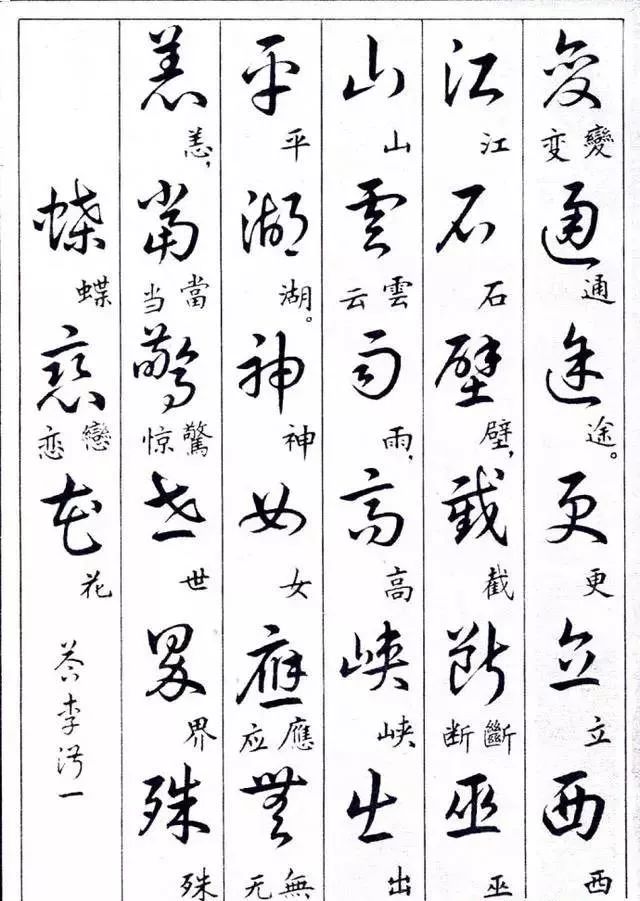 变通途更立西
變变通途。更立西
江石壁截斷巫
江石壁，截斷断巫
山雲雨高峡出
山雲云雨，高峡出
平湖神女應無
平湖。神女應应無无
恙當驚世界殊
恙，當当驚惊世界殊
蝶恋花
蝶戀恋花
答李淑一